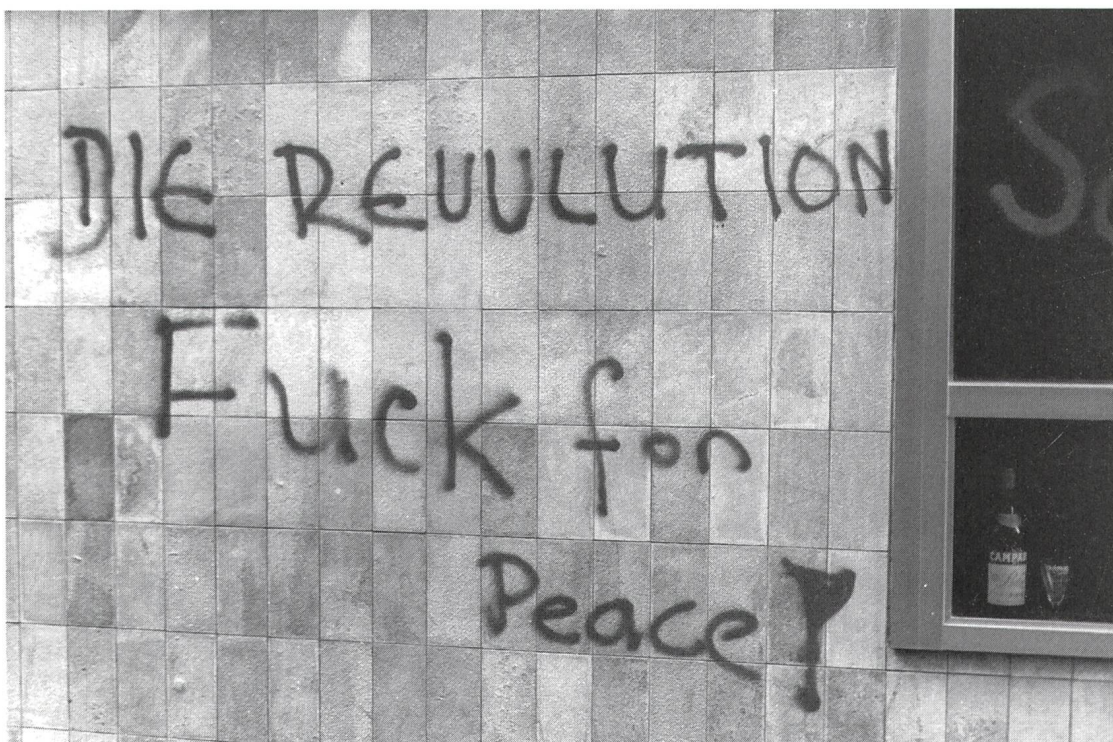 DIE REVULUTION
Fuck for
Peace!
CAMPARI